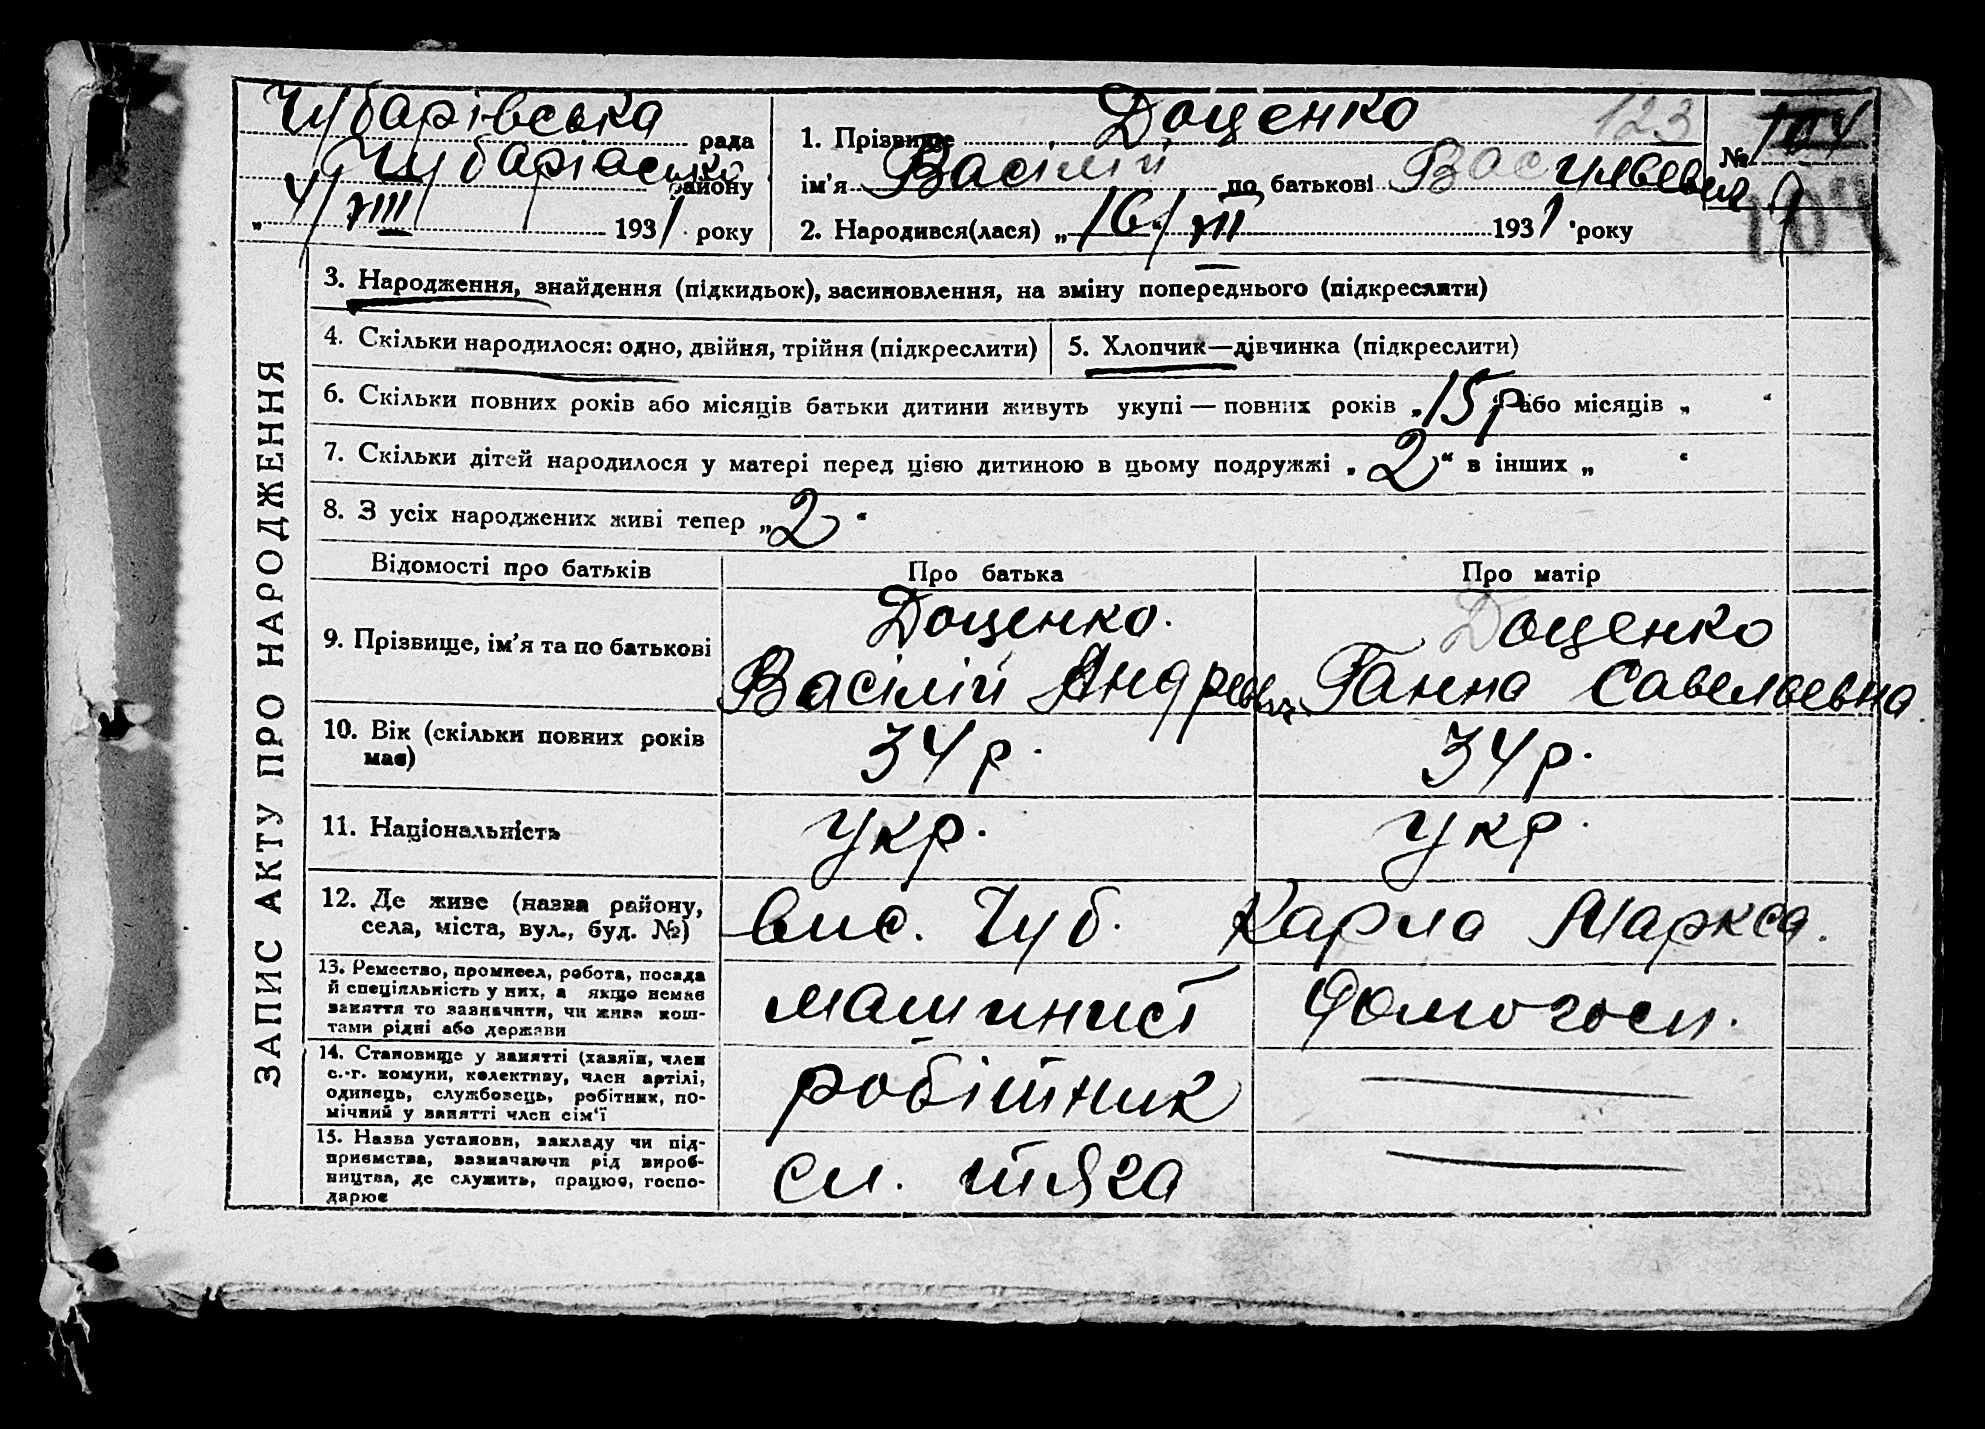 Чубарівська рада
Чубарівсько району
„ 4/VIII 1931 року
1. Прізвище Доценко 123
ім’я Васілій по батькові Васильевич
2. Народився(лася) „16/VII 1931 року
№ 104
104
ЗАПИС АКТУ ПРО НАРОДЖЕННЯ
3. Народження, знайдення (підкидьок), засиновлення, на зміну попереднього (підкреслити)
4. Скільки народилося: одно, двійня, трійня (підкреслити) 5. Хлопчик—дівчинка (підкреслити)
6. Скільки повних років або місяців батьки дитини живуть укупі — повних років „15 р“ або місяців „ “
7. Скільки дітей народилося у матері перед цією дитиною в цьому подружжі „2“ в інших „ “
8. З усіх народжених живі тепер „2“
Відомості про батьків Про батька Про матір
9. Прізвище, ім’я та по батькові
Доценко. Доценко
Васілій Андреевич Ганна Савельевна
10. Вік (скільки повних років
має)
34 р. 34 р.
11. Національність укр. укр.
12. Де живе (назва району,
села, міста, вул., буд. №)
вис. Чуб. Карла Маркса.
13. Ремество, промисел, робота, посада
й спеціяльність у них, а якщо немає
заняття то зазначити, чи живе кош-
тами рідні або держави
машинист домогосп.
14. Становище у занятті (хазяїн, член
с.-г. комуни, колективу, член артілі,
одинець, службовець, робітник, по-
мічний у занятті член сім‘ї
робітник
15. Назва установи, закладу чи під-
приємства, зазначаючи рід вироб-
ництва, де служить, працює, госпо-
дарює
сл. тяга